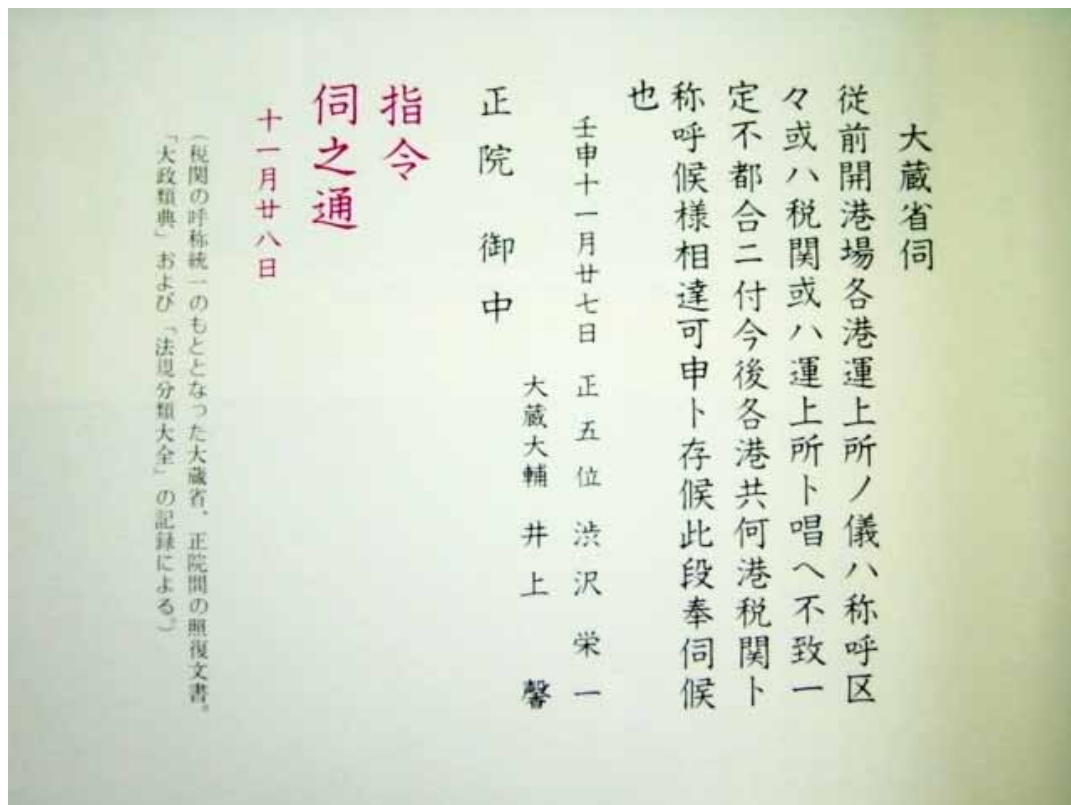 大蔵省伺
従前開港場各港運上所ノ儀ハ称呼区
々或ハ税関或ハ運上所ト唱ヘ不致一
定不都合ニ付今後各港共何港税関ト
称呼候様相達可申ト存候此段奉伺候
也
壬申十一月廿七日 正五位 渋沢栄一
大蔵大輔 井上馨
正院 御中
指令
伺之通
十一月廿八日
(税関の呼称統一のもととなった大蔵省、正院間の照復文書。
「大政類典」および「法規分類大全」の記録による。)